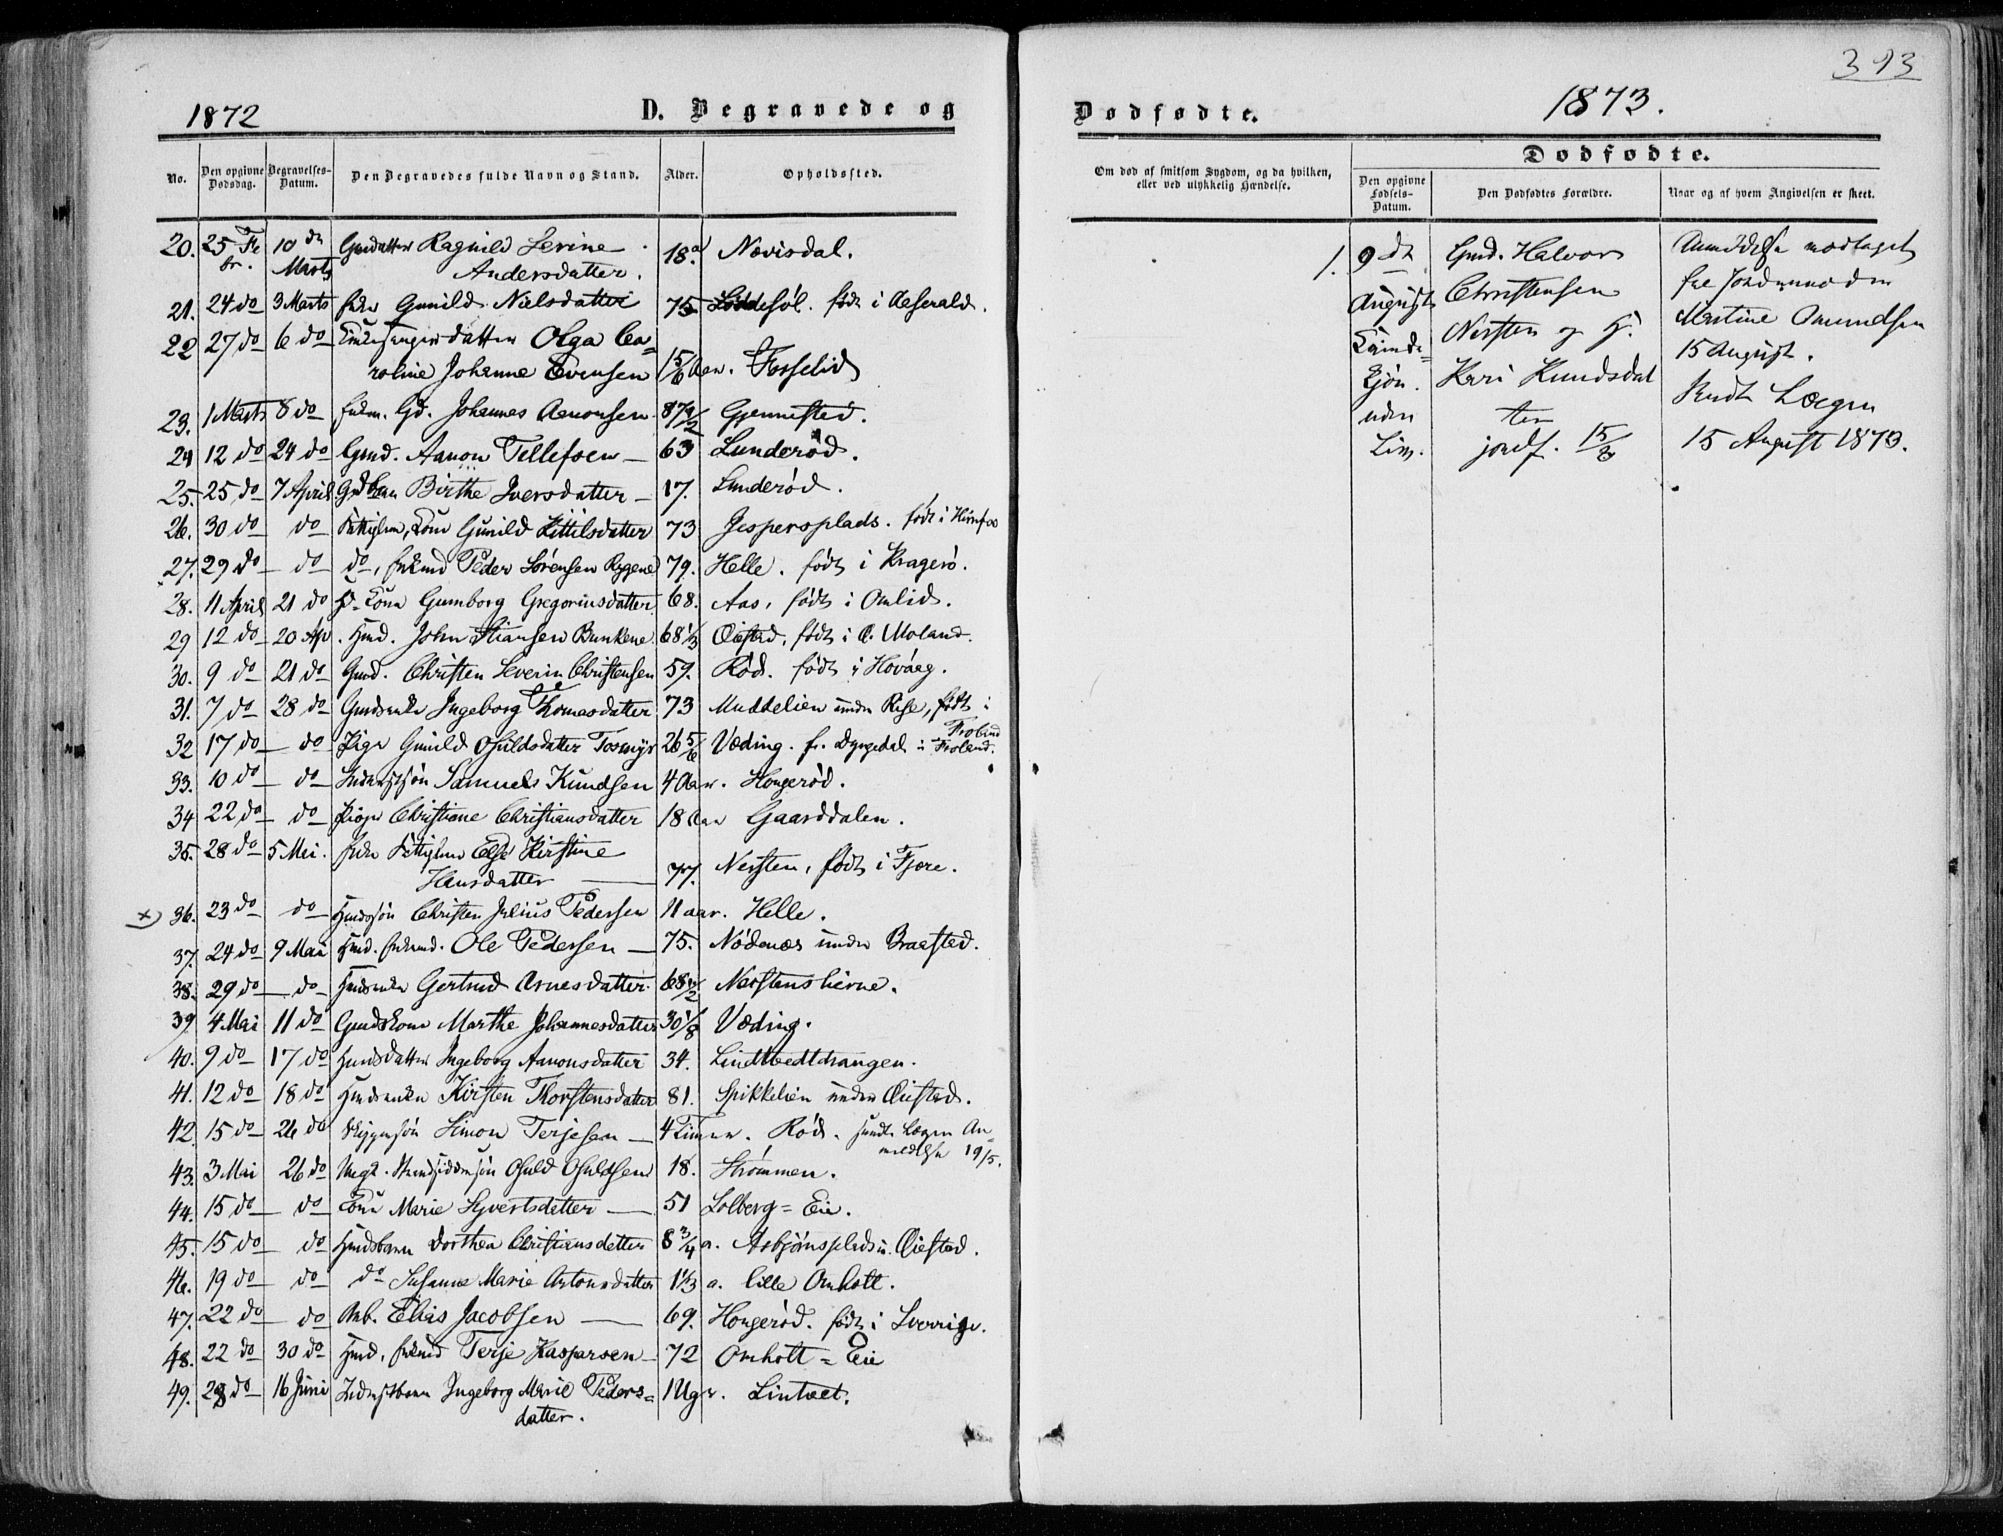 1872 D. Begravede og
No. Den opgivne Dødsdag. Begravelses-Datum. Den Begravedes fulde Navn og Stand. Alder. Opholdssted.
20. 25 Febr. 10de Marts Gmdatter Ragnild Serine Andersdatter. 18 a. Nævisdal.
21. 24 do 3 Marts Gunild Nielsdatter 75 født i Aaserald.
22 27 do 6 do Kirkesangerdatter Olga Caroline Johanne Evensen 15/6 Aar. Fosselid
23. 1 Marts 8 do Gd. Johannes Aanonsen 87 1/2 Gjennestad.
24 12 do 24 do Gmd. Aanon Tellefsen — 63 Lunderød.
25. 25 do 7 April Birthe Iversdatter — 17. Lunderød.
26. 30 do do Fattiglem, Kone Gunild Kittilsdatter 73 Jespersplads. født i
27. 29 do do do, Peder Sørensen Rygene 79. Helle. født i Kragerø.
28. 11 April 21 do Kone Gumborg Gregoriusdatter 68. Aas, født i Omlid.
29 12 do 20 Ap. Hmd. John Stiansen Bunkene 68 1/3 Øiestad, født i Ø. Moland.
30. 9 do 21 do Gmd. Christen Severin Christensen 59. Rød. født i Høvaag.
31. 7 do 28 do Gmdsenke Ingeborg Thomasdatter 73 Muddelien under Rise, født i Froland
32 17 do — do Pige Gunild Osuldsdatter Tosmyr 26 5/6 Væding. fr. Dyrgedal i Froland.
33. 10 do do Samuel Knudsen 4 Aar. Hougerød.
34 22 do do Pige Christiane Christiansdatter 18 Aar Gaarddalen.
35. 28 do 5 Mai. Fattiglem Else Kirstine Hansdatter — 77. Nersten, født i Fjære.
x) 36. 23 do do Hmdssøn Christen Julius Pedersen 11 aar. Helle.
37. 24 do 9 Mai Hmd. Ole Pedersen — 75. Nødenæs under Braastad.
38. 29 do do Hmdsenke Gertrud Arnesdatter 68 1/2 Nerstensheene.
39 4 Mai 11 do Gmdskone Marthe Johannesdatter 30 1/8 Væding.
40. 9 do 17 do Hmdsdatter Ingeborg Aanonsdatter 34. Lindtvedtdrangen.
41. 12 do 18 do Hmdsenke Kirsten Thorstensdatter 81. Spikkelien under Øiestad.
42. 15 do 26 do Simon Terjesen — 4 Timer. Rød. sendt Lægen Anmeldelse 19/5.
43. 3 Mai 26 do Ungk. Osuld Osuldsen 18. Strømmen.
44. 15 do do Kone Marie Syvertsdatter — 51 Solberg = Eie.
45. 15 do do Hmdsbarn Dorthea Christiansdatter 8 3/4 a. Asbjørnsplads u. Øiestad.
46. 19 do do do Susanne Marie Antonsdatter 1 1/3 a. lille Omholt.
47. 22 do do Arb. Elias Jacobsen — 69. Hougerød. født i Sverrige.
48. 22 do 30 do Hmd. Terje Kaspersen 72 Omholt = Eie
49. 28 do 16 Juni Ingeborg Marie Pedersdatter. 1 Uge. Lintvet.
393
Dødfødte. 1873.
Om død af smitsom Sygdom, og da hvilken, eller ved ulykkelig Hændelse.
Dødfødte.
Den opgivne Fødsels-Datum. Den Dødfødtes Forældre. Naar og af hvem Angivelsen er skeet.
1. 9de Gmd. Halvor Anmeldelse modtaget
August Christensen fra Jordemoder
Kvinde- Nersten og H. Martine Omundsen
kjøn. Kari Knudsdat 15 August.
uden ter Sendt Lægen
Liv. jordf. 15/8 15 August 1873.